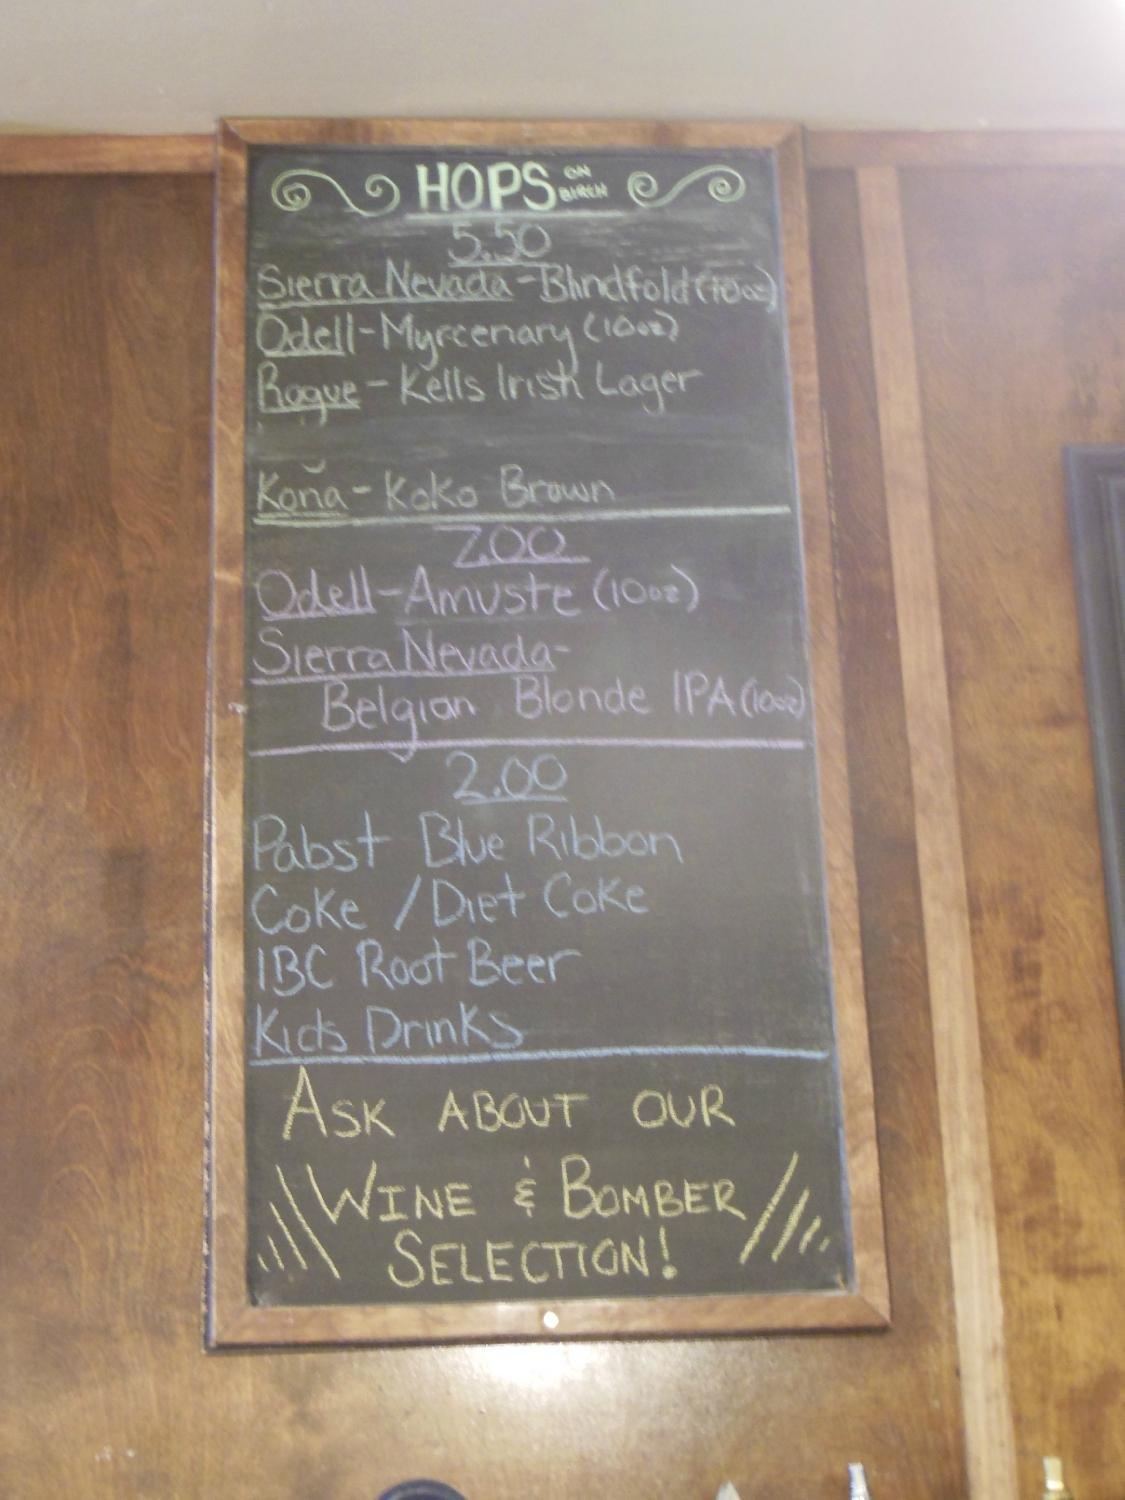 HOPS ON BIRCH
5.50
Sierra Nevada - Blindfold (10oz)
Odell - Myrcenary (10oz)
Rogue - Kells Irish Lager
Kona - Koko Brown
7.00
Odell - Amuste (10oz)
Sierra Nevada -
Belgian Blonde IPA (10oz)
2.00
Pabst Blue Ribbon
Coke / Diet Coke
IBC Root Beer
Kids Drinks
ASK ABOUT OUR
WINE & BOMBER
SELECTION!